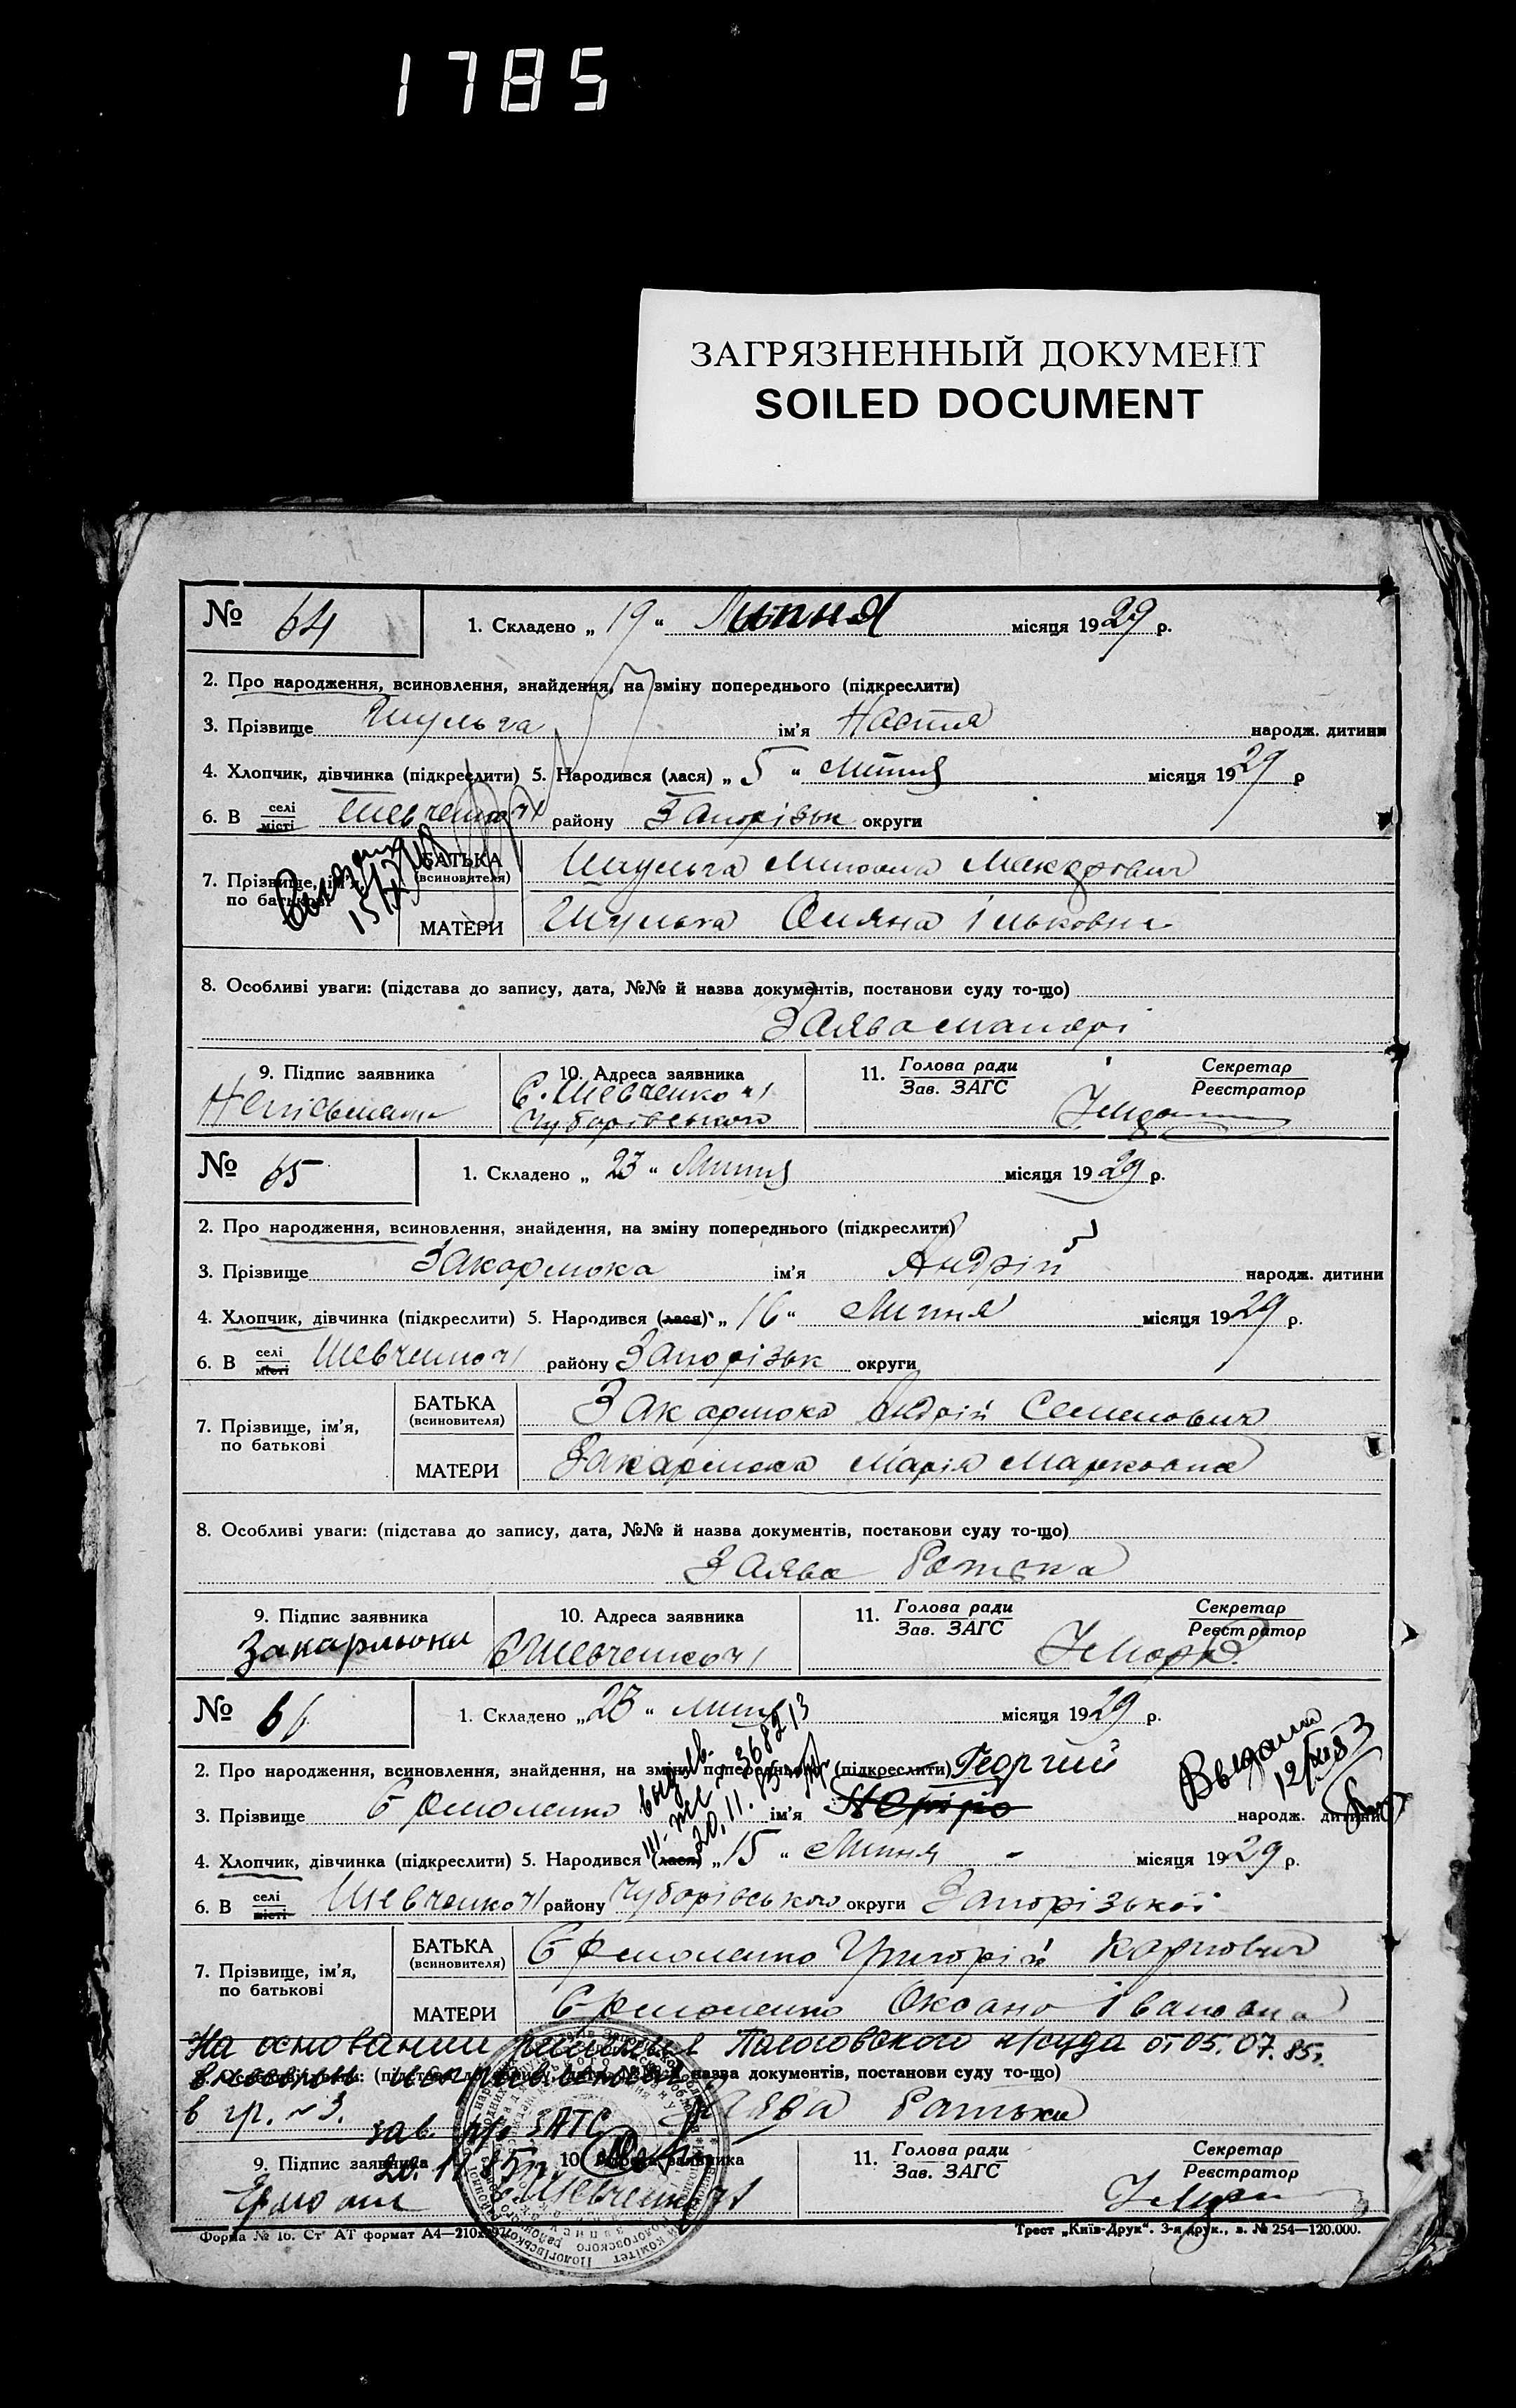 1785
ЗАГРЯЗНЕННЫЙ ДОКУМЕНТ
SOILED DOCUMENT
№ 64 1. Складено „ 19 “ Липня місяця 1929 р.
2. Про народження, всиновлення, знайдення, на зміну попереднього (підкреслити)
3. Прізвище Шульга ім'я Настя народж. дитини
4. Хлопчик, дівчинка (підкреслити) 5. Народився (лася) „ 5 “ липня місяця 1929 р
6. В селі місті Шевченко ві району Запорізьк округи
7. Прізвище, ім'я, по батькові
БАТЬКА (всиновителя) Шульга Макарович
МАТЕРИ Шульга Ільковна
8. Особливі уваги: (підстава до запису, дата, №№ й назва документів, постанови суду то-що)
Заява матері
9. Підпис заявника 10. Адреса заявника 11. Голова ради Зав. ЗАГС Секретар Реєстратор
Неписьменна с. Шевченко
Чубарівського
№ 65 1. Складено „ 23 “ Липня місяця 1929 р.
2. Про народження, всиновлення, знайдення, на зміну попереднього (підкреслити)
3. Прізвище Закарлюка ім'я Андрій народж. дитини
4. Хлопчик, дівчинка (підкреслити) 5. Народився (лася) „ 16 “ Липня місяця 1929 р.
6. В селі місті Шевченко району Запорізьк округи
7. Прізвище, ім'я, по батькові
БАТЬКА (всиновителя) Закарлюка Андрій Семенович
МАТЕРИ Закарлюка Марія Марковна
8. Особливі уваги: (підстава до запису, дата, №№ й назва документів, постакови суду то-що)
Заява батька
9. Підпис заявника 10. Адреса заявника 11. Голова ради Зав. ЗАГС Секретар Реєстратор
Закарлюка с Шевченко
№ 66 1. Складено „ 23 “ липня місяця 1929 р.
2. Про народження, всиновлення, знайдення, на зміну попереднього (підкреслити) Георгий
3. Прізвище Єрмоленко ім'я народж. дитини
20.11.85
Выдано
4. Хлопчик, дівчинка (підкреслити) 5. Народився (лася) „ 15 “ Липня місяця 1929 р.
6. В селі місті Шевченко району Чубарівського округи Запорізької
7. Прізвище, ім'я, по батькові
БАТЬКА (всиновителя) Єрмоленко Григорій Карпович
МАТЕРИ Єрмоленко Оксана Івановна
На основании решения Пологовского н/суда от 05.07.85г.
внесены исправления
8. Особливі уваги: (підстава до запису, дата, №№ й назва документів, постанови суду то-що)
в гр. ~ 3. Заява батька
зав. р/о ЗАГС
20.11.85г.
9. Підпис заявника 10. Адреса заявника 11. Голова ради Зав. ЗАГС Секретар Реєстратор
с. Шевченко
Форма № 1б. Ст. АТ формат А4—210х Трест „Київ-Друк“. 3-я друк., з. № 254—120.000.